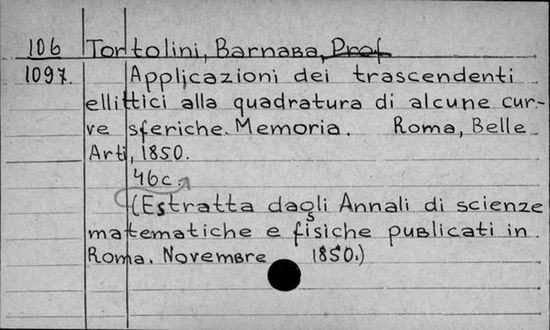 106 Tortolini, Barnaba, Prof
1097. Applicazioni dei trascendenti
ellittici alla quadratura di alcune cur-
ve sferiche. Memoria. Roma, Belle
Arti, 1850.
46c.
(Estratta dagli Annali di scienze
matematiche e fisiche publicati in
Roma. Novembre 1850.)